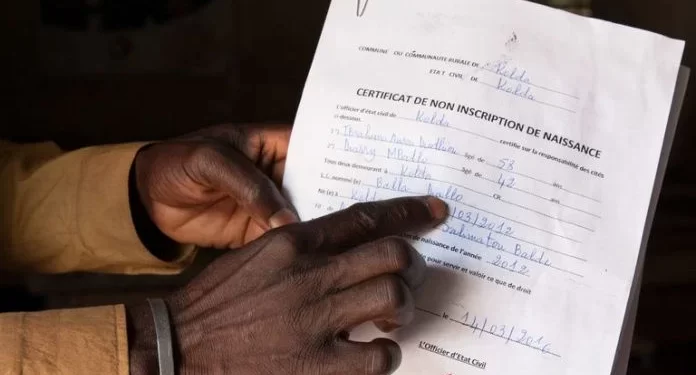 COMMUNE OU COMMUNAUTE RURALE DE Kolda
ETAT CIVIL DE Kolda
CERTIFICAT DE NON INSCRIPTION DE NAISSANCE
L'officier d'état civil de Kolda certifie sur la responsabilité des cités
ci-dessous.
Ibrahima agé de 53 ans
agé de 42 ans
Tous deux demeurant à Kolda CR.
nommé (e) Diallo
Né (e) à /03/2012
et de Balde
de naissance de l'année 2012
pour servir et valoir ce que de droit
14/03/2016
L'Officier d'Etat Civil